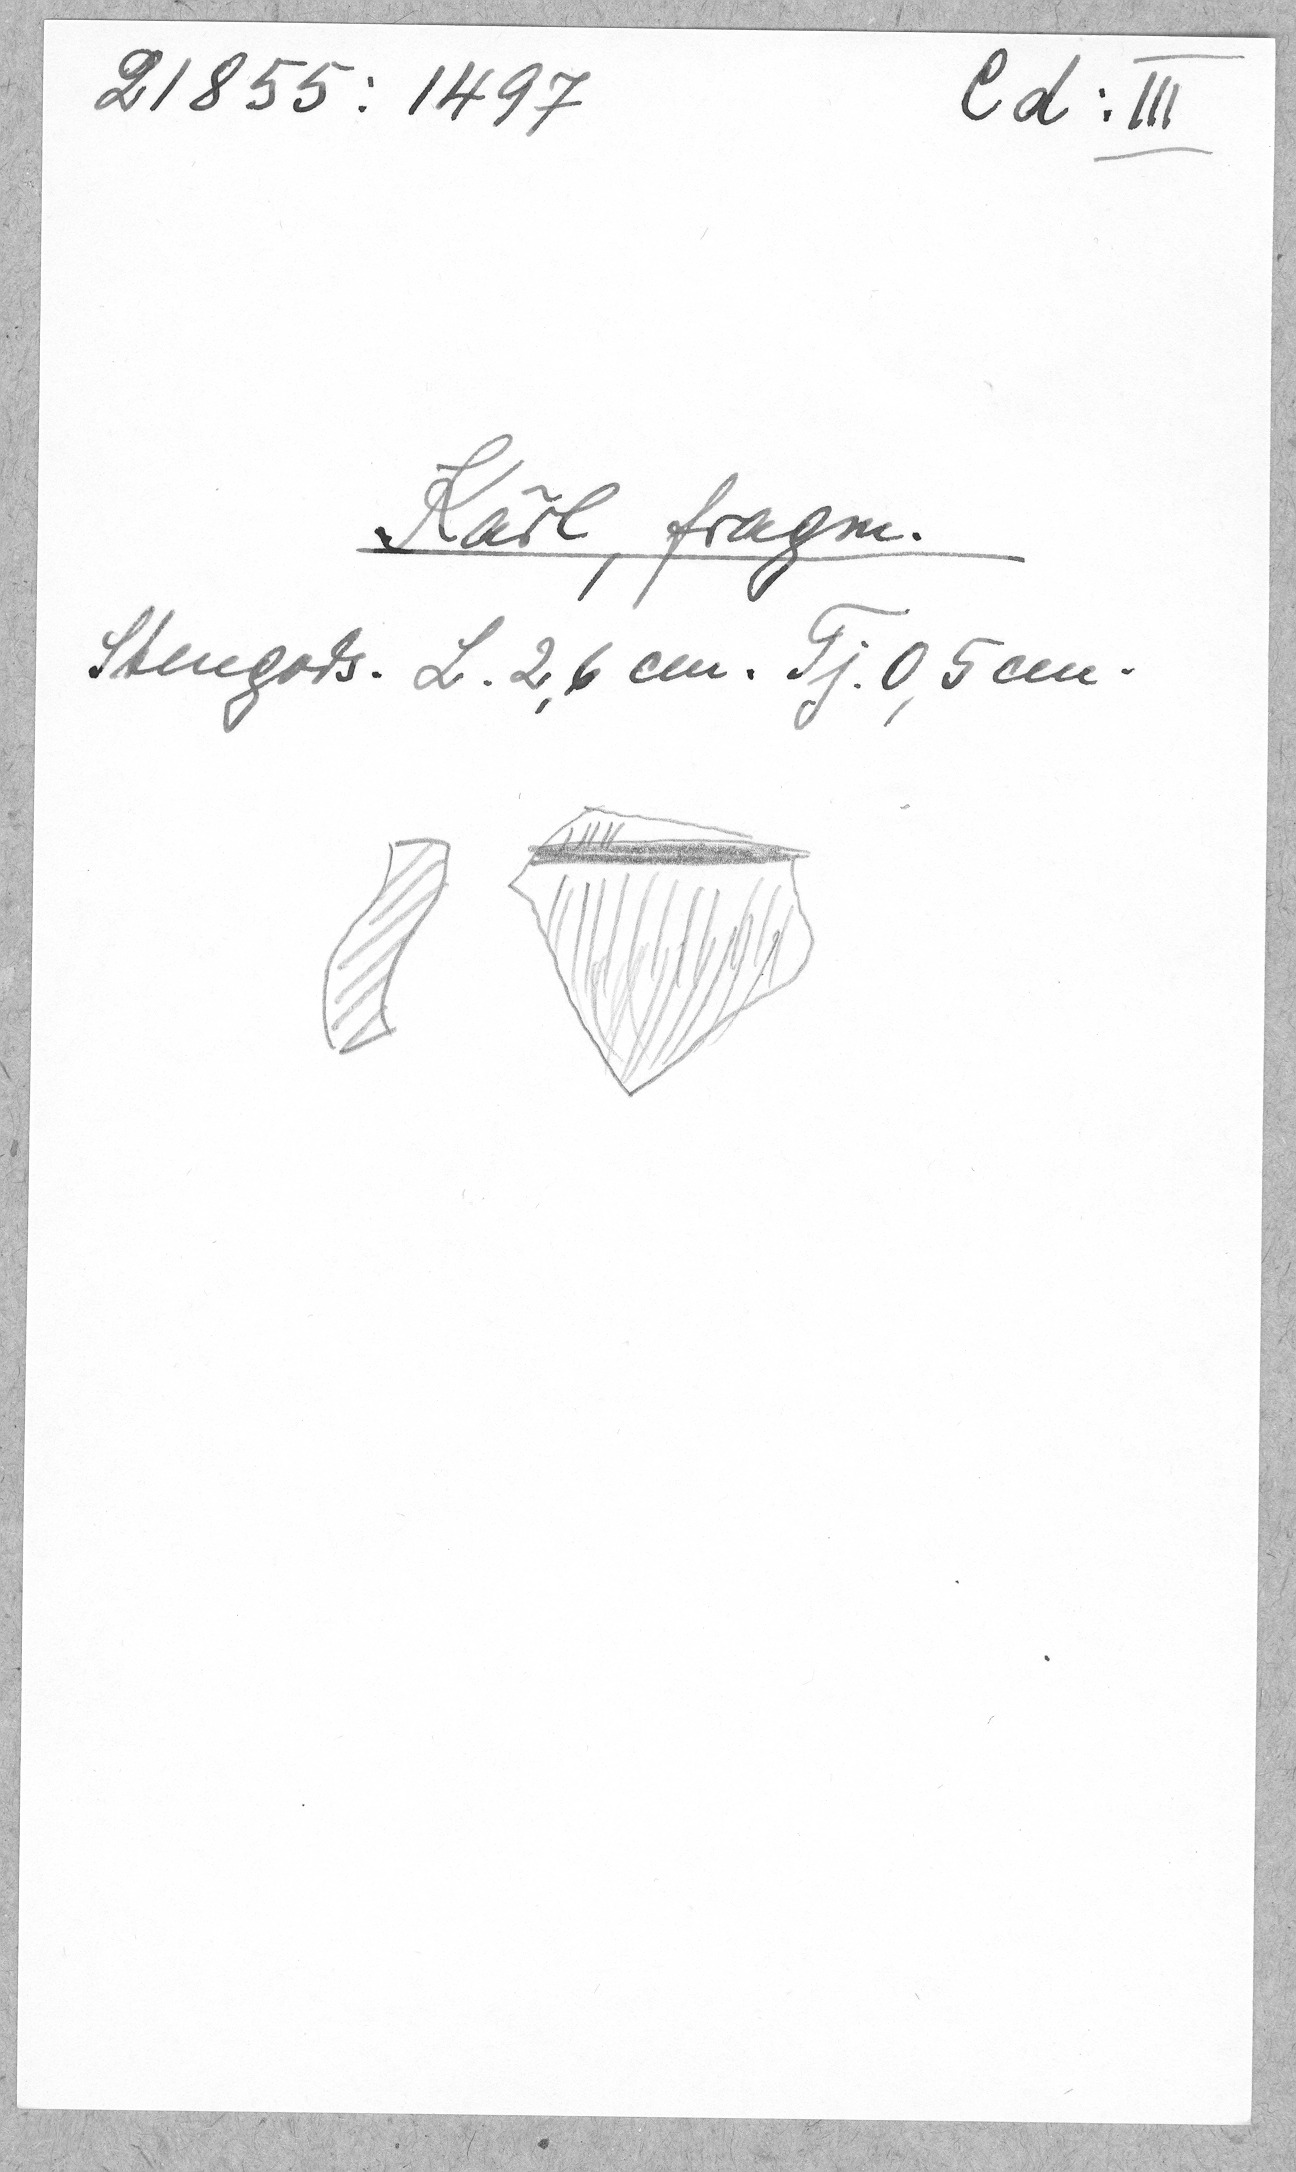 21855:1497 Cd:III
Kärl, fragm.
Stengods. L. 2,6 cm. Tj. 0,5 cm.